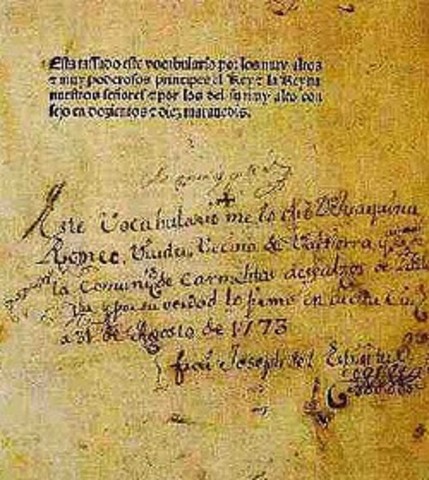 Esta tassado este vocabulario por los muy altos
⁊ muy poderosos principes el Rey ⁊ la Reyna
nuestros señores ⁊ por los del su muy alto con
sejo en dozientos ⁊ diez marauedis.
Este Vocabulario me lo dio Dª Juaquina
Romeo, Viuda, Vecina de Valtierra,
la Comunid de Carmelitas descalzos de
y por ser verdad lo firmo en dicha
a 31 de Agosto de 1773
frai Joseph del Espiritu